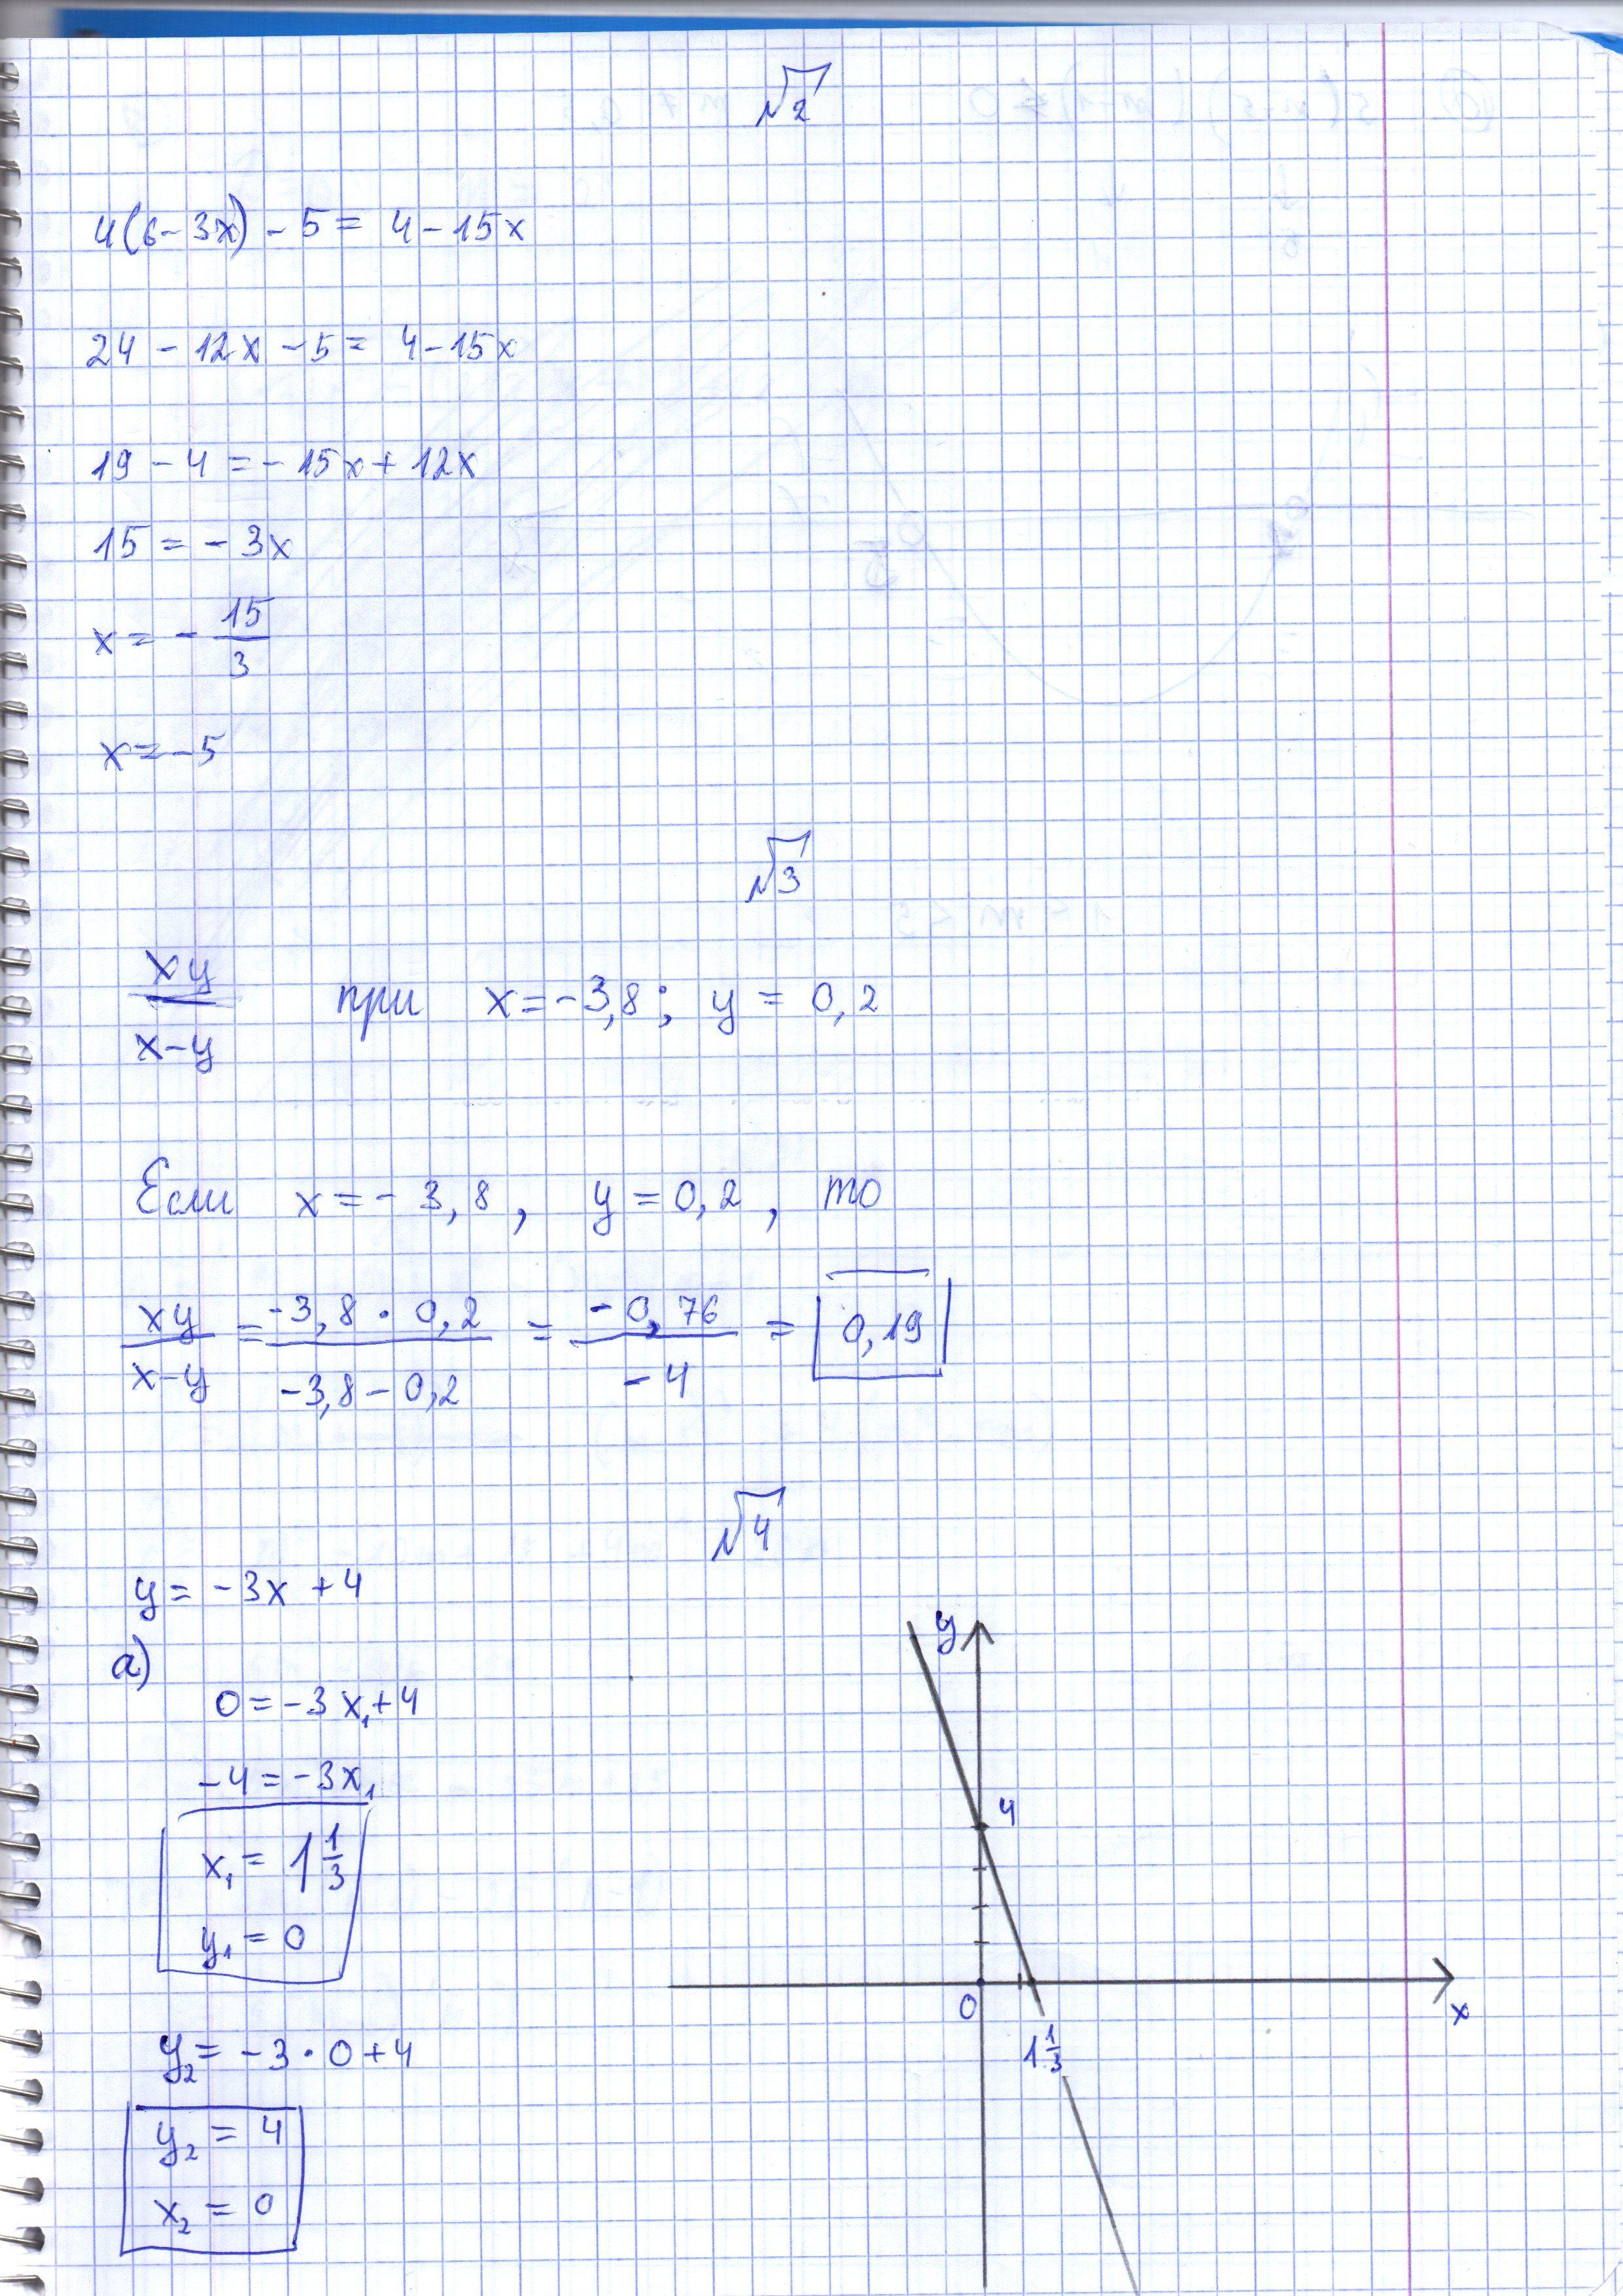 √2
4(6-3x) - 5 = 4 - 15x
24 - 12x - 5 = 4 - 15x
19 - 4 = - 15x + 12x
15 = - 3x
x = - 15/3
x = - 5
√3
xy/x-y при x = -3,8; y = 0,2
Если x = - 3,8, y = 0,2, то
xy/x-y = -3,8 · 0,2/-3,8 - 0,2 = -0,76/-4 = 0,19
√4
y = - 3x + 4
а)
0 = - 3x₁ + 4
-4 = -3x₁
x₁ = 1 1/3
y₁ = 0
y₂ = -3 · 0 + 4
y₂ = 4
x₂ = 0
y
4
0
x
1 1/3